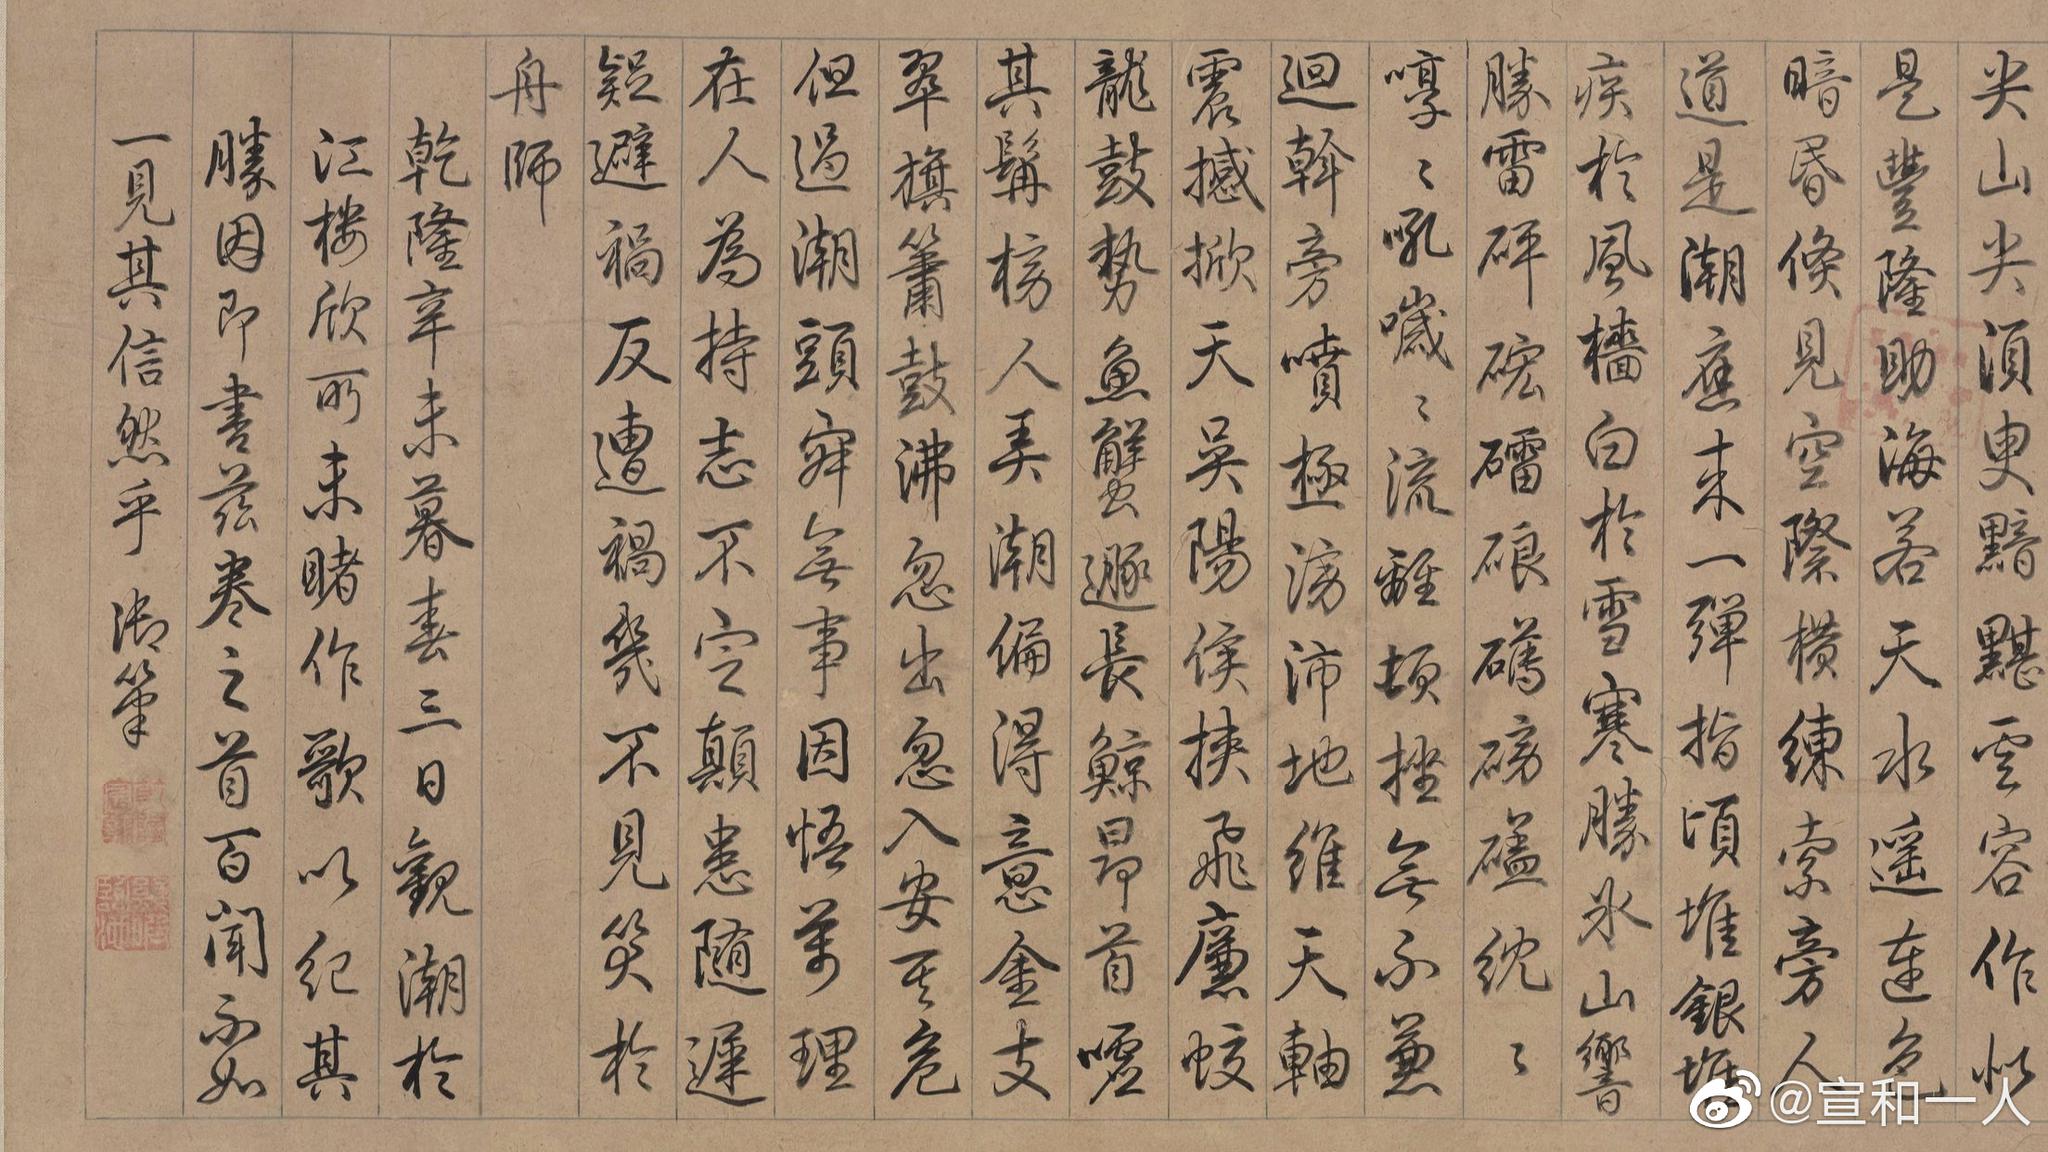 尖山尖湏臾黯黮雲容作似
是豐隆助海若天水遥連色
暗昏倐見空際横練索旁人
道是潮應来一彈指頃堆銀堆
疾於風檣白於雪寒勝氷山響
勝雷砰磤礌硠礴磅礚紞〻
嘷〻吼噦〻流離頓挫無不兼
迴斡旁噴極滂沛地維天軸
震撼掀天吳陽侯挾飛廉蛟
龍鼓勢魚蠏遯長鯨昂首嘘
其髯榜人弄潮偏得意金支
翠旗簫鼓沸忽出忽入安其危
但過潮頭穽無事因悟萬理
在人為持志不定顛患隨遲
疑避禍反遭禍幾不見笑於
舟師
乾隆辛未暮春三日觀潮於
江楼欣所未睹作歌以紀其
勝因即書茲卷之首百聞不如
一見其信然乎 御筆
@宣和一人